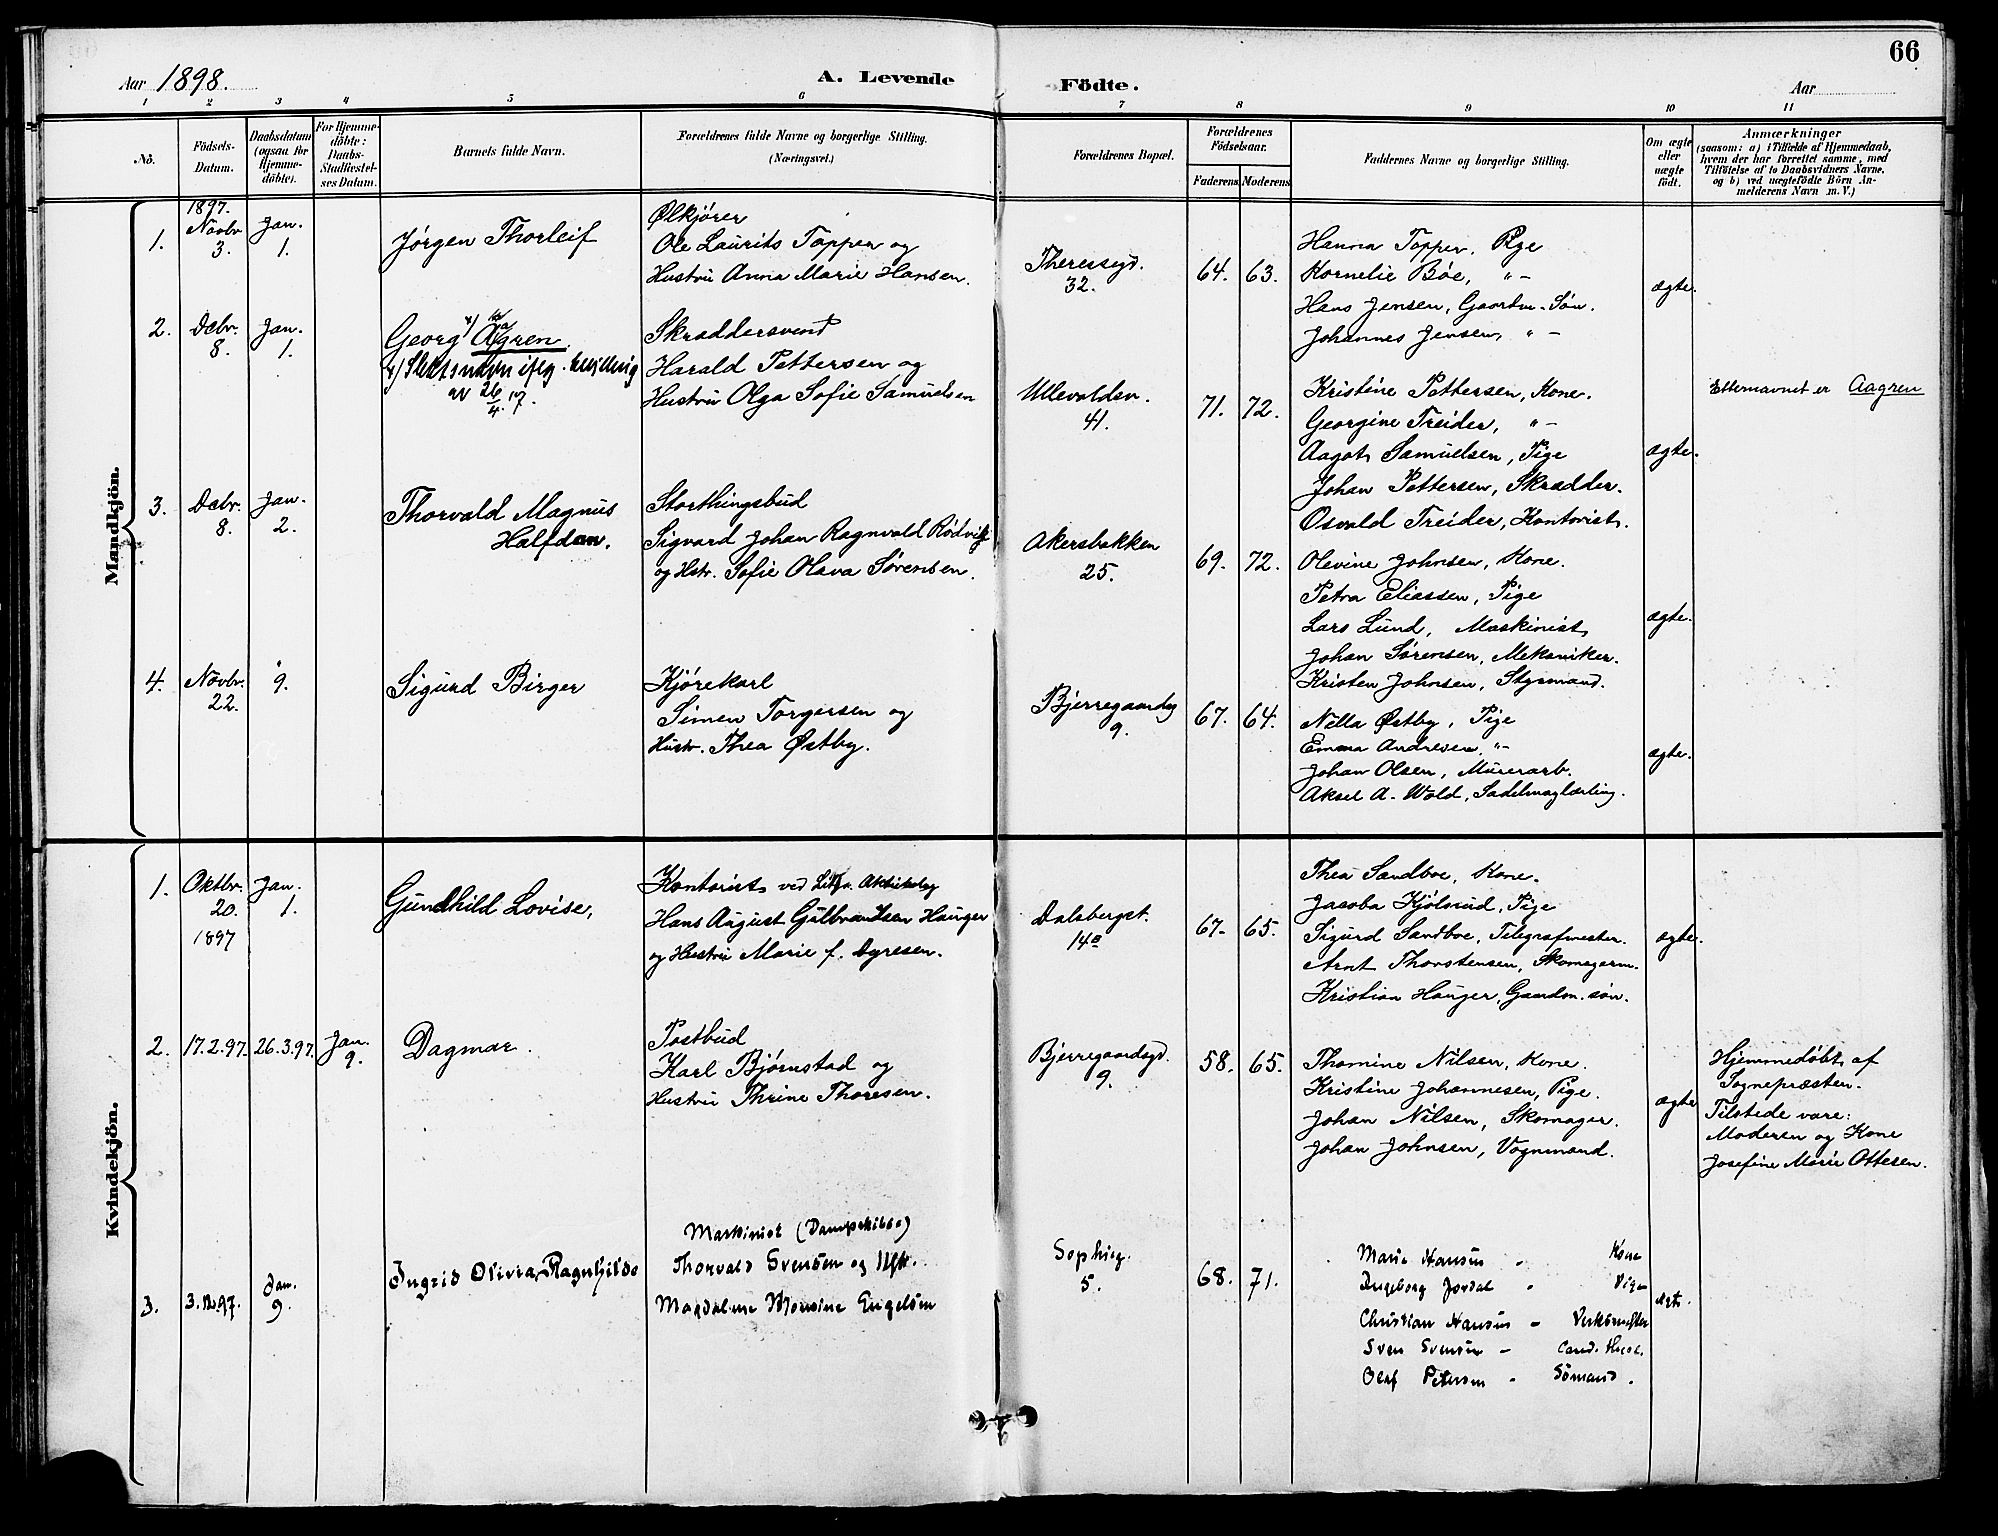 66
Aar 1898.
A. Levende Födte.
Aar
1 2 3 4 5 6 7 8 9 10 11
No.
Födsels-Datum.
Daabsdatum (ogsaa for Hjemmedöbte).
For Hjemmedöbte: Daabs-Stadfæstelses Datum.
Barnets fulde Navn.
Forældrenes fulde Navne og borgerlige Stilling.
(Næringsvei.)
Forældrenes Bopæl.
Forældrenes Födselsaar.
Faderens Moderens
Faddernes Navne og borgerlige Stilling.
Om ægte eller uægte født.
Anmærkninger
(saasom: a) i Tilfælde af Hjemmedaab,
hvem der har forrettet samme, med
Tilføielse af to Daabsvidners Navne,
og b) ved uægtefødte Börn An-
melderens Navn m. V.)
Mandkjön.
1.
1897.
Novbr.
3.
Jan.
1.
Jørgen Thorleif
Ølkjører
Ole Laurits Topper og
Hustru Anna Marie Hansen.
Theresegd.
32.
64. 63.
Hanna Topper, Pige
Kornelie Bøe, "-
Hans Jensen, Gaardm. Søn.
Johannes Jensen, " -
ægte.
2.
Debr.
8.
Jan.
1.
Georg Agren
av 26/4.17.
Skræddersvend
Harald Pettersen og
Hustru Olga Sofie Samuelsen
Ullevoldsv.
41.
71. 72.
Kristine Pettersen, Kone.
Georgine Treider, "-
Aagot Samuelsen, Pige
Johan Pettersen, Skrædder.
Osvald Treider, Kontorist.
ægte.
Etternavnet er Aagren
3.
Debr.
8.
Jan.
2.
Thorvald Magnus
Halfdan.
Storthingsbud
Sigvard Johan Ragnvald Rødvig
og Hstr. Sofie Olava Sørensen.
Akersbakken
25.
69. 72.
Olevine Johnsen, Kone.
Petra Eliassen, Pige
Lars Lund, Maskinist
Johan Sørensen, Mekaniker.
Kristen Johnsen, Styrmand.
ægte.
4.
Novbr.
22.
"
9.
Sigurd Birger
Kjørekarl
Simen Torgersen og
Hustr. Thea Østby.
Bjerregaardsg
9.
67. 64.
Nella Østby, Pige
Emma Andresen, "-
Johan Olsen, Murerarb.
Aksel A. Wold, Sadelmaglærling.
ægte.
Kvindekjön.
1.
Oktbr.
20.
1897
Jan.
1.
Gundhild Lovise,
Kontorist ved
Hans August Gulbrandsen Hauger
og Hustru Marie f. Dyresen.
Dalsbergst.
14
67- 65.
Thea Sandboe, Kone.
Jacoba Kjølsrud, Pige
Sigurd Sandboe, Telegrafmester.
Arnt Thorstensen, Skomagerm.
Kristian Hauger, Gaardm. søn.
ægte.
2.
17.2.97.
26.3.97.
Jan.
9.
Dagmar.
Postbud
Karl Bjørnstad og
Hustru Thrine Thoresen.
Bjerregaardsgd.
9.
58. 65.
Thomine Nilsen, Kone.
Kristine Johannesen, Pige.
Johan Nilsen, Skomager.
Johan Johnsen, Vognmand.
ægte
Hjemmedøbt af
Sognepræsten.
Tilstede vare:
Moderen og Kone
Josefine Marie Ottesen.
3.
3.12.97.
Jan.
9.
Ingrid Olivia Ragnhilde
Maskinist (Dampskibs)
Thorvald Svensen og Hstr.
Magdalene Monsine Engelsen
Sophieg.
5
68. 71.
Marie Hansen - Kone
Ingeborg Jordal - Pige
Christian Hansen - Verksmester
Sven Svensen - Cand. theol.
Olaf Petersen - Sömand.
ægte.